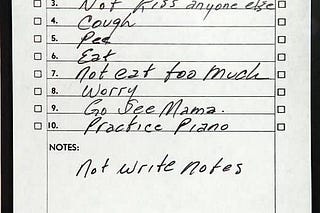 3. Not Kiss anyone else
4. Cough
5. Pee
6. Eat
7. Not eat too much
8. Worry
9. Go See Mama.
10. Practice Piano
NOTES:
Not write notes